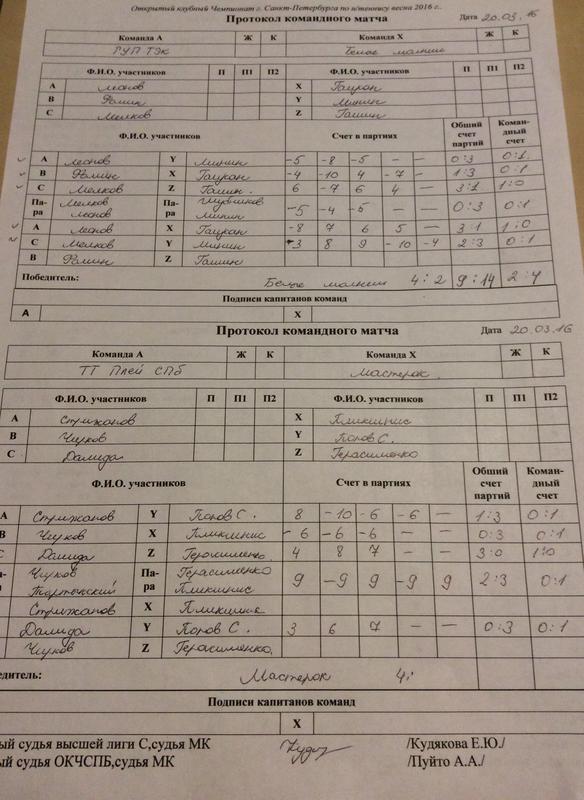 Открытый клубный Чемпионат г. Санкт-Петербурга по н/теннису весна 2016 г.
Протокол командного матча Дата 20.03.16
Команда А Ж К Команда Х Ж К
РУП ТЭК Белые молнии
Ф.И.О. участников П П1 П2 Ф.И.О. участников П П1 П2
А Леонов X Гацкан
В Фомин Y Минин
С Мелков Z Гашин
Ф.И.О. участников Счет в партиях Общий счет партий Коман-дный счет
А Леонов Y Минин -5 -8 -5 — — 0:3 0:1
В Фомин X Гацкан -4 -10 4 -7 — 1:3 0:1
С Мелков Z Гашин. 6 -7 6 4 — 3:1 1:0
Па-ра Мелков Леонов Па-ра Минин -5 -4 -5 — — 0:3 0:1
А Леонов X Гацкан -8 7 6 5 — 3:1 1:0
С Мелков Y Минин -3 8 9 -10 -4 2:3 0:1
В Фомин Z Гашин
Победитель: Белые молнии 4:2 9:14 2:4
Подписи капитанов команд
А X
Протокол командного матча Дата 20.03.16
Команда А Ж К Команда Х Ж К
ТТ Плей СПб Мастерок
Ф.И.О. участников П П1 П2 Ф.И.О. участников П П1 П2
А Стрижанов X Пликинис
В Чуков Y Попов С.
С Далида Z Герасименко
Ф.И.О. участников Счет в партиях Общий счет партий Коман-дный счет
А Стрижанов Y Попов С. 8 -10 -6 -6 — 1:3 0:1
В Чуков X Пликинис -6 -6 -6 — — 0:3 0:1
С Далида Z Герасименко. 4 8 7 — — 3:0 1:0
а-ра Чуков Па-ра Герасименко Пликинис 9 -9 9 -9 9 2:3 0:1
Стрижанов X Пликинис
Далида Y Попов С. 3 6 7 — — 0:3 0:1
Чуков Z Герасименко.
едитель: Мастерок 4:
Подписи капитанов команд
X
ый судья высшей лиги С,судья МК /Кудякова Е.Ю./
ый судья ОКЧСПБ,судья МК /Пуйто А.А./